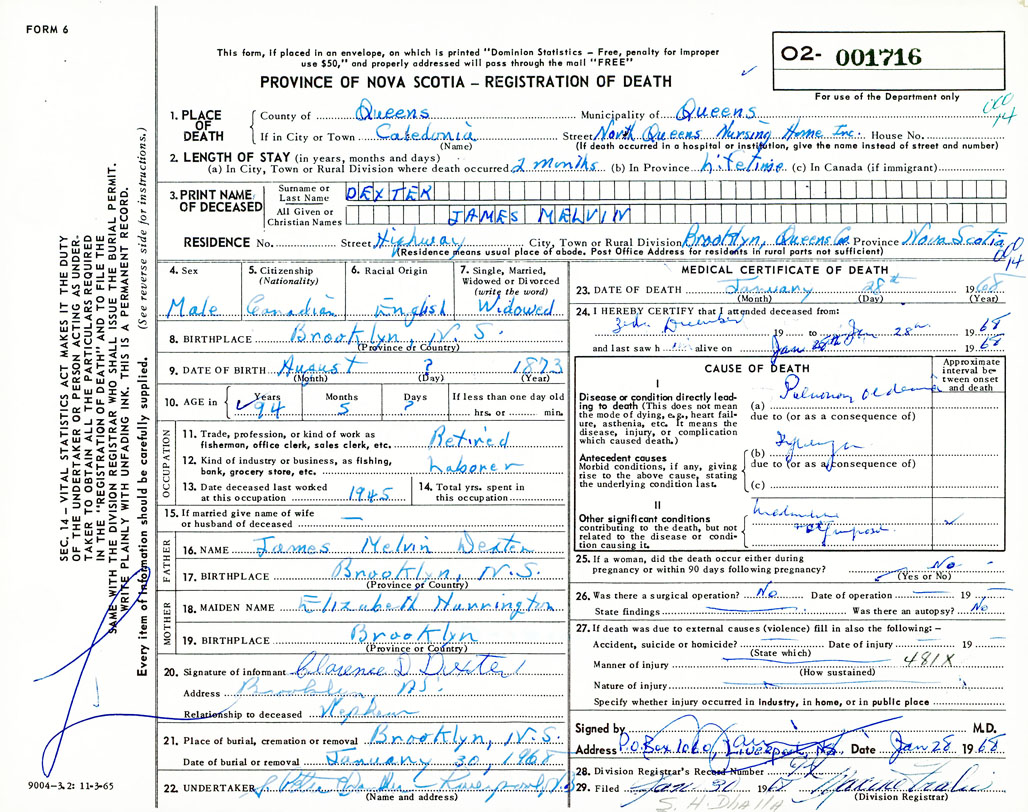 FORM 6
This form, if placed in an envelope, on which is printed "Dominion Statistics – Free, penalty for improper
use $50," and properly addressed will pass through the mail "FREE"
PROVINCE OF NOVA SCOTIA – REGISTRATION OF DEATH
02- 001716
For use of the Department only
1. PLACE OF DEATH
County of Queens Municipality of Queens
If in City or Town Caledonia Street North Queens Nursing Home Inc. House No.
(Name) (If death occurred in a hospital or institution, give the name instead of street and number)
2. LENGTH OF STAY (in years, months and days)
(a) In City, Town or Rural Division where death occurred 2 months (b) In Province Lifetime (c) In Canada (if immigrant)
3. PRINT NAME OF DECEASED
Surname or Last Name DEXTER
All Given or Christian Names JAMES MELVIN
RESIDENCE No. Street Highway City, Town or Rural Division Brooklyn, Queens Co. Province Nova Scotia
(Residence means usual place of abode. Post Office Address for residents in rural parts not sufficient)
000
14
000
14
4. Sex Male
5. Citizenship (Nationality) Canadian
6. Racial Origin English
7. Single, Married, Widowed or Divorced (write the word) Widowed
8. BIRTHPLACE Brooklyn, N.S.
(Province or Country)
9. DATE OF BIRTH August ? 1873
(Month) (Day) (Year)
10. AGE in Years 94 Months 5 Days ? If less than one day old
hrs. or min.
OCCUPATION
11. Trade, profession, or kind of work as fisherman, office clerk, sales clerk, etc. Retired
12. Kind of industry or business, as fishing, bank, grocery store, etc. Laborer
13. Date deceased last worked at this occupation 1945
14. Total yrs. spent in this occupation
15. If married give name of wife or husband of deceased —
FATHER
16. NAME James Melvin Dexter
17. BIRTHPLACE Brooklyn, N.S.
(Province or Country)
MOTHER
18. MAIDEN NAME Elizabeth Hunnington
19. BIRTHPLACE Brooklyn
(Province or Country)
20. Signature of informant Clarence D Dexter
Address Brooklyn NS.
Relationship to deceased Nephew
21. Place of burial, cremation or removal Brooklyn, N.S.
Date of burial or removal January 30, 1968
22. UNDERTAKER
(Name and address)
MEDICAL CERTIFICATE OF DEATH
23. DATE OF DEATH January 28th 1968
(Month) (Day) (Year)
24. I HEREBY CERTIFY that I attended deceased from:
3rd December 19 to Jan 28th 1968
and last saw h im alive on Jan 28th 1968
CAUSE OF DEATH
Approximate interval between onset and death
I
Disease or condition directly leading to death (This does not mean the mode of dying, e.g., heart failure, asthenia, etc. It means the disease, injury, or complication which caused death.)
(a) Pulmonary oedema
due to (or as a consequence of)
Antecedent causes
Morbid conditions, if any, giving rise to the above cause, stating the underlying condition last.
(b)
due to (or as a consequence of)
(c)
II
Other significant conditions
contributing to the death, but not related to the disease or condition causing it.
25. If a woman, did the death occur either during
pregnancy or within 90 days following pregnancy? No
(Yes or No)
26. Was there a surgical operation? No Date of operation 19
State findings Was there an autopsy? No
27. If death was due to external causes (violence) fill in also the following: –
Accident, suicide or homicide? Date of injury 19
(State which)
Manner of injury 481X
(How sustained)
Nature of injury
Specify whether injury occurred in Industry, in home, or in public place
Signed by M.D.
Address P.O. Box 1060, Liverpool, N.S. Date Jan 28 1968
28. Division Registrar's Record Number
29. Filed Jan 30 1968
(Division Registrar)
S. H. Dhalla
SEC. 14 – VITAL STATISTICS ACT MAKES IT THE DUTY
OF THE UNDERTAKER OR PERSON ACTING AS UNDER-
TAKER TO OBTAIN ALL THE PARTICULARS REQUIRED
IN THE "REGISTRATION OF DEATH" AND TO FILE THE
SAME WITH THE DIVISION REGISTRAR WHO SHALL ISSUE THE BURIAL PERMIT.
WRITE PLAINLY WITH UNFADING INK. THIS IS A PERMANENT RECORD.
Every item of information should be carefully supplied. (See reverse side for instructions.)
9004-3.2: 11-3-65